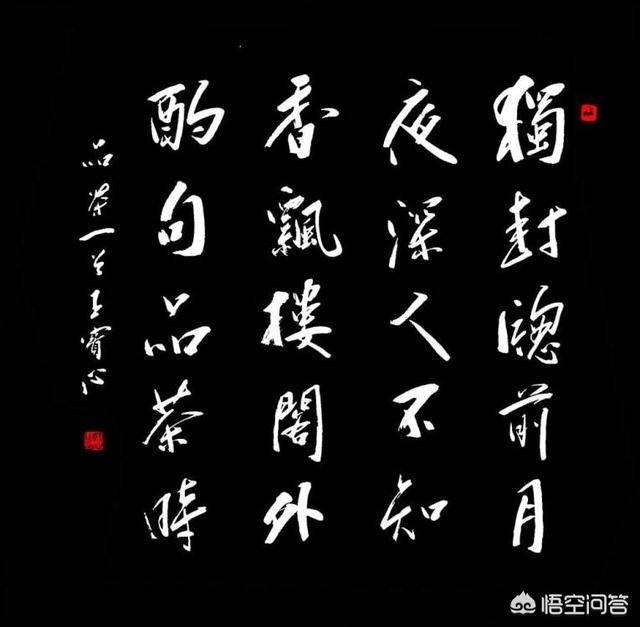 獨對牕前月
夜深人不知
香飄樓閣外
酌句品茶時
品茶一首王心
悟空问答